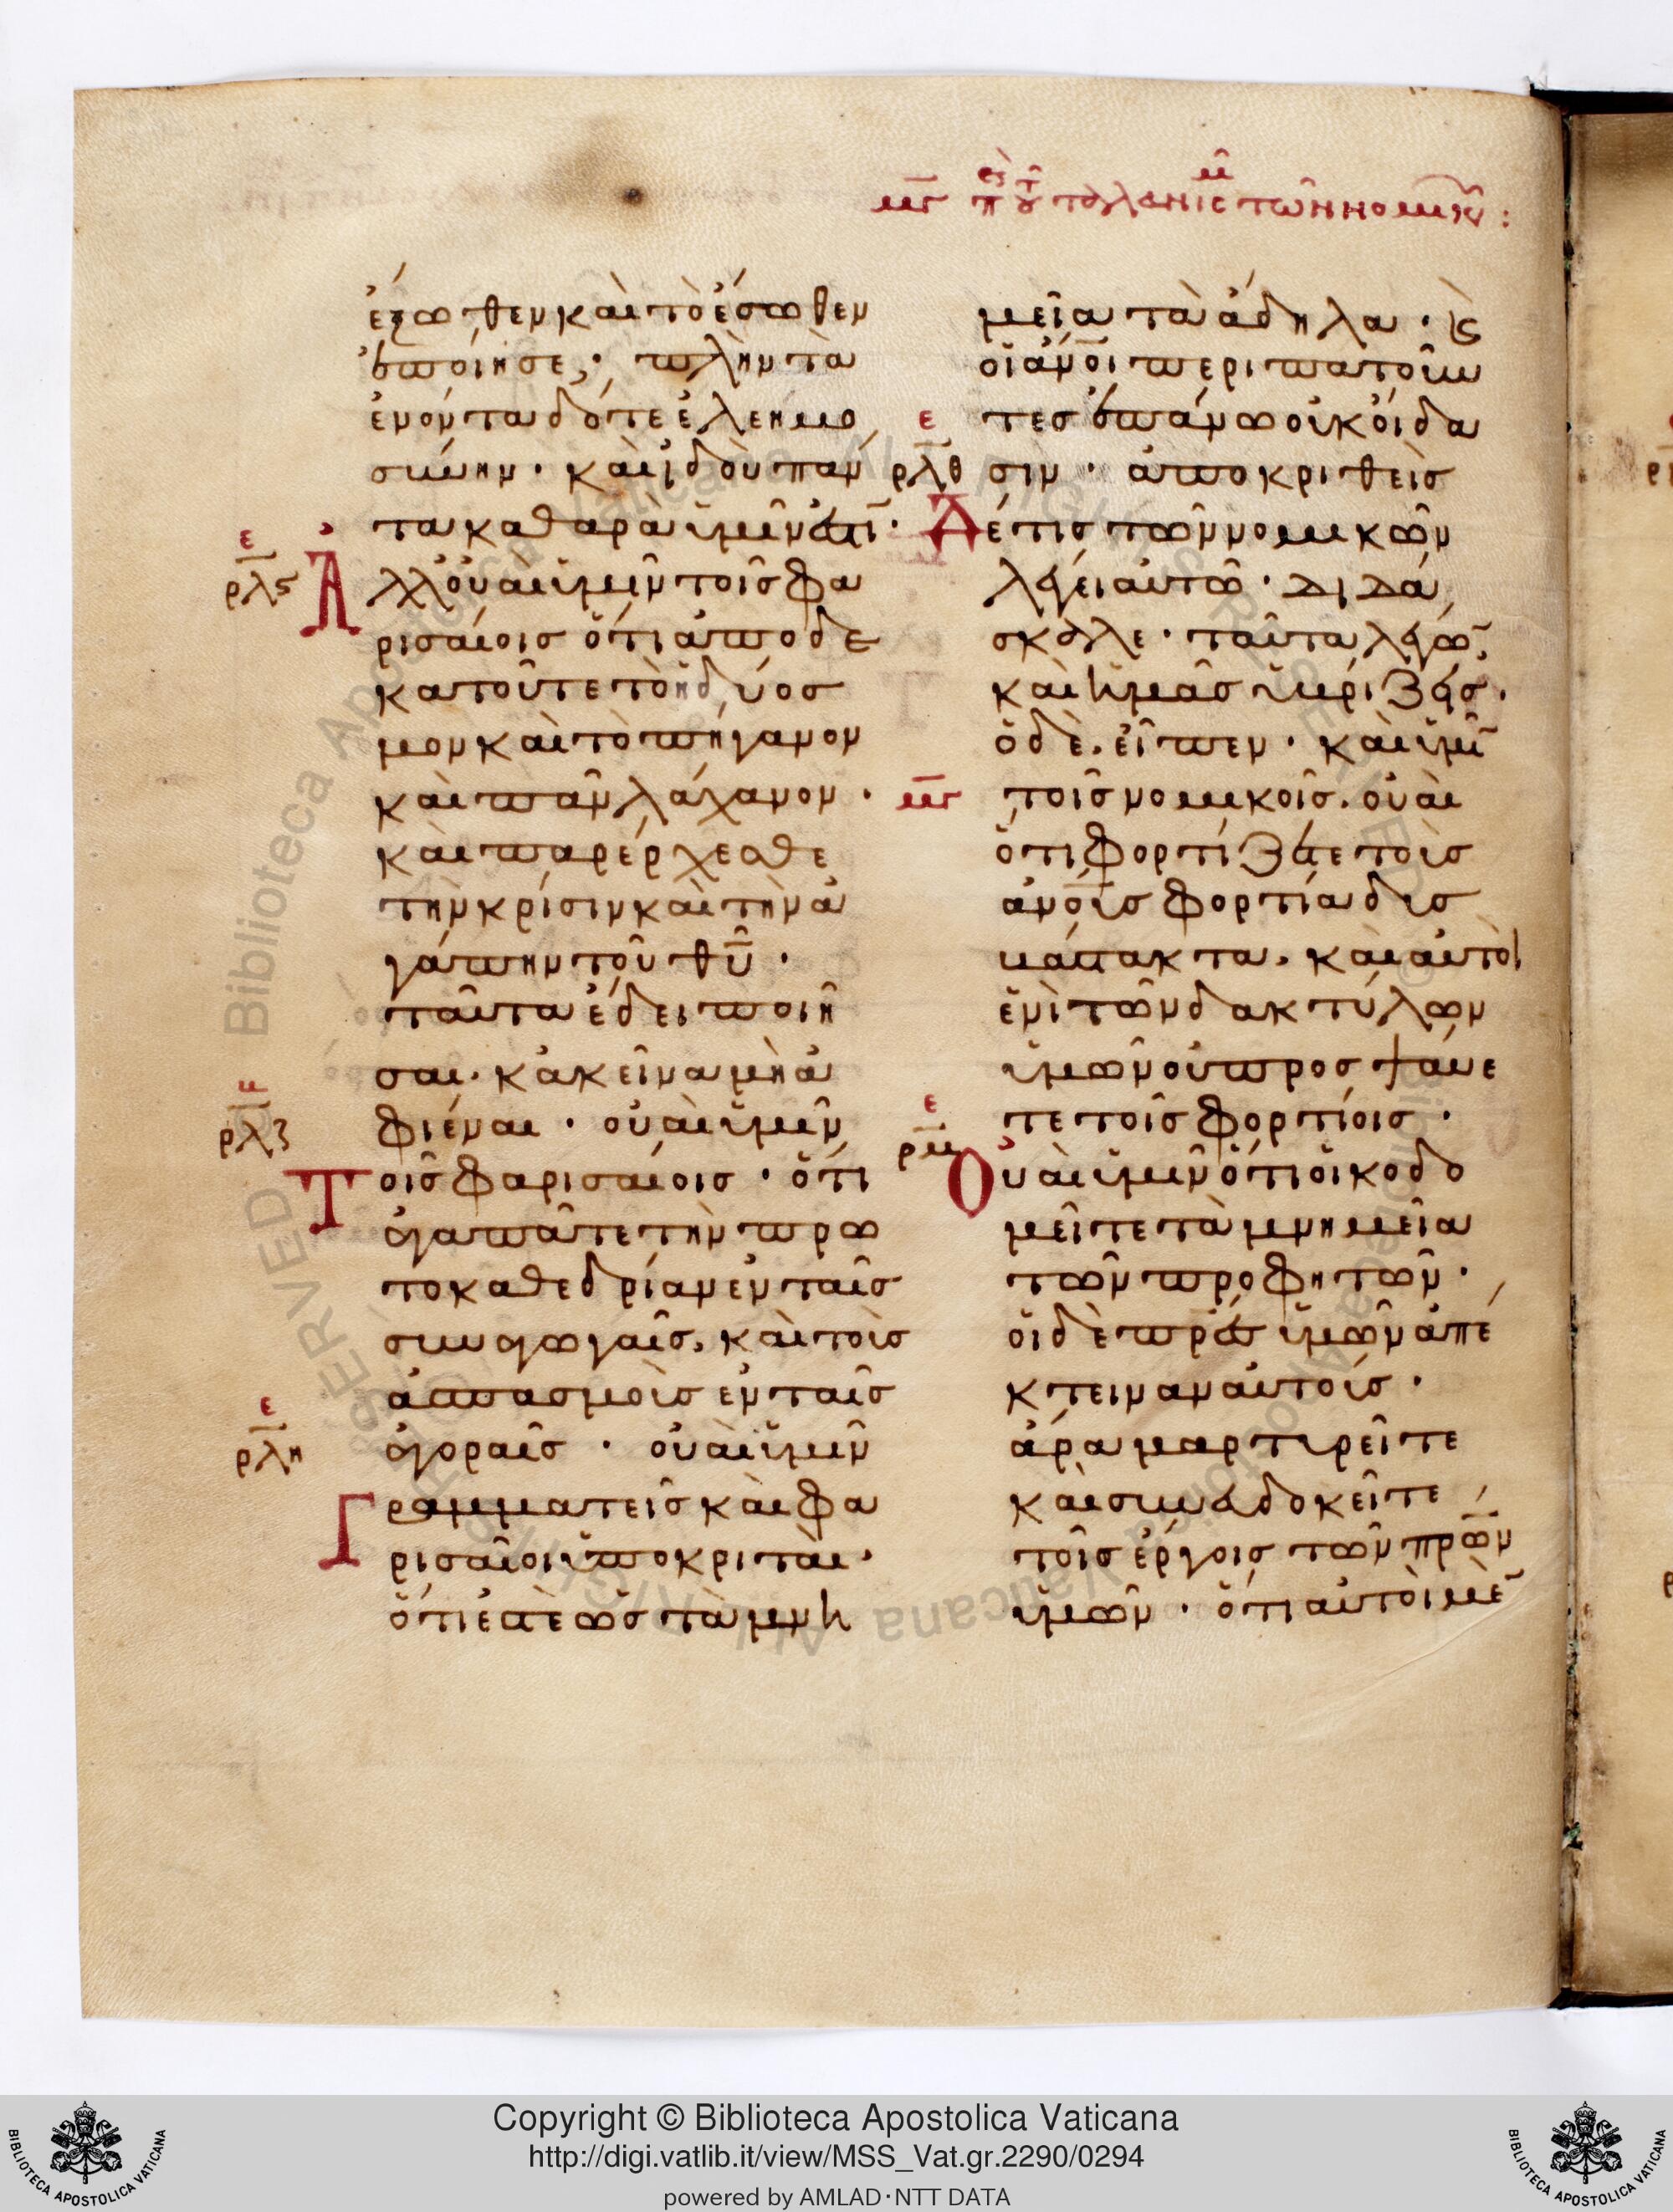 μγ π τ ταλανισμ τῶν νομικῶν :
ἔξωθεν καὶ τὸ ἔσωθεν
ἐποίησε, πλὴν τὰ
ἐνόντα δότε ἐλεημο
σύνην · καὶ ἰδοὺ πάν
τα καθαρὰ ὑμῖν ἐστί ·
ε
ρλϛ
Ἀλλ' οὐαὶ ὑμῖν τοῖς φα
ρισαίοις ὅτι ἀποδε
κατοῦτε τὸ ἡδύοσ
μον καὶ τὸ πήγανον
καὶ πᾶν λάχανον ·
καὶ παρέρχεσθε
τὴν κρίσιν καὶ τὴν ἀ
γάπην τοῦ θυ ·
ταῦτα ἔδει ποιῆ
σαι · κἀκεῖνα μὴ ἀ
φιέναι · οὐαὶ ὑμῖν
ρλζ
Τοῖς φαρισαίοις · ὅτι
ἀγαπᾶτε τὴν πρω
τοκαθεδρίαν ἐν ταῖς
συναγωγαῖς, καὶ τοὺς
ἀσπασμοὺς ἐν ταῖς
ἀγοραῖς · οὐαὶ ὑμῖν
ε
ρλη
Γραμματεῖς καὶ φα
ρισαῖοι ὑποκριταί ·
ὅτι ἐστὲ ὡς τὰ μνη
μεῖα τὰ ἄδηλα · κ
οἱ ἀνοι περιπατοῦν
τες ἐπάνω οὐκ οἴδα
σιν · ἀποκριθεὶς
ε
ρλθ
Δέ τις τῶν νομικῶν
λέγει αὐτῶ · διδά
σκαλε · ταῦτα λέγω
καὶ ἡμᾶς ὑβρίζεις ·
ὁ δὲ εἶπεν · καὶ ὑμῖ
μγ
τοῖς νομικοῖς · οὐαὶ
ὅτι φορτίζετε τοὺς
ἀνους φορτία δυσ
βάστακτα · καὶ αὐτοὶ
ἑνὶ τῶν δακτύλων
ὑμῶν οὐ προσψαύε
τε τοῖς φορτίοις ·
ε
ρμ
Οὐαὶ ὑμῖν ὅτι οἰκοδο
μεῖτε τὰ μνημεῖα
τῶν προφητῶν ·
οἱ δὲ πρες ὑμῶν ἀπέ
κτειναν αὐτούς ·
ἄρα μαρτυρεῖτε
καὶ συνευδοκεῖτε
τοῖς ἔργοις τῶν πρων
ὑμῶν · ὅτι αὐτοὶ μὲ
Copyright © Biblioteca Apostolica Vaticana
http://digi.vatlib.it/view/MSS_Vat.gr.2290/0294
powered by AMLAD·NTT DATA
BIBLIOTECA APOSTOLICA VATICANA
BIBLIOTECA APOSTOLICA VATICANA